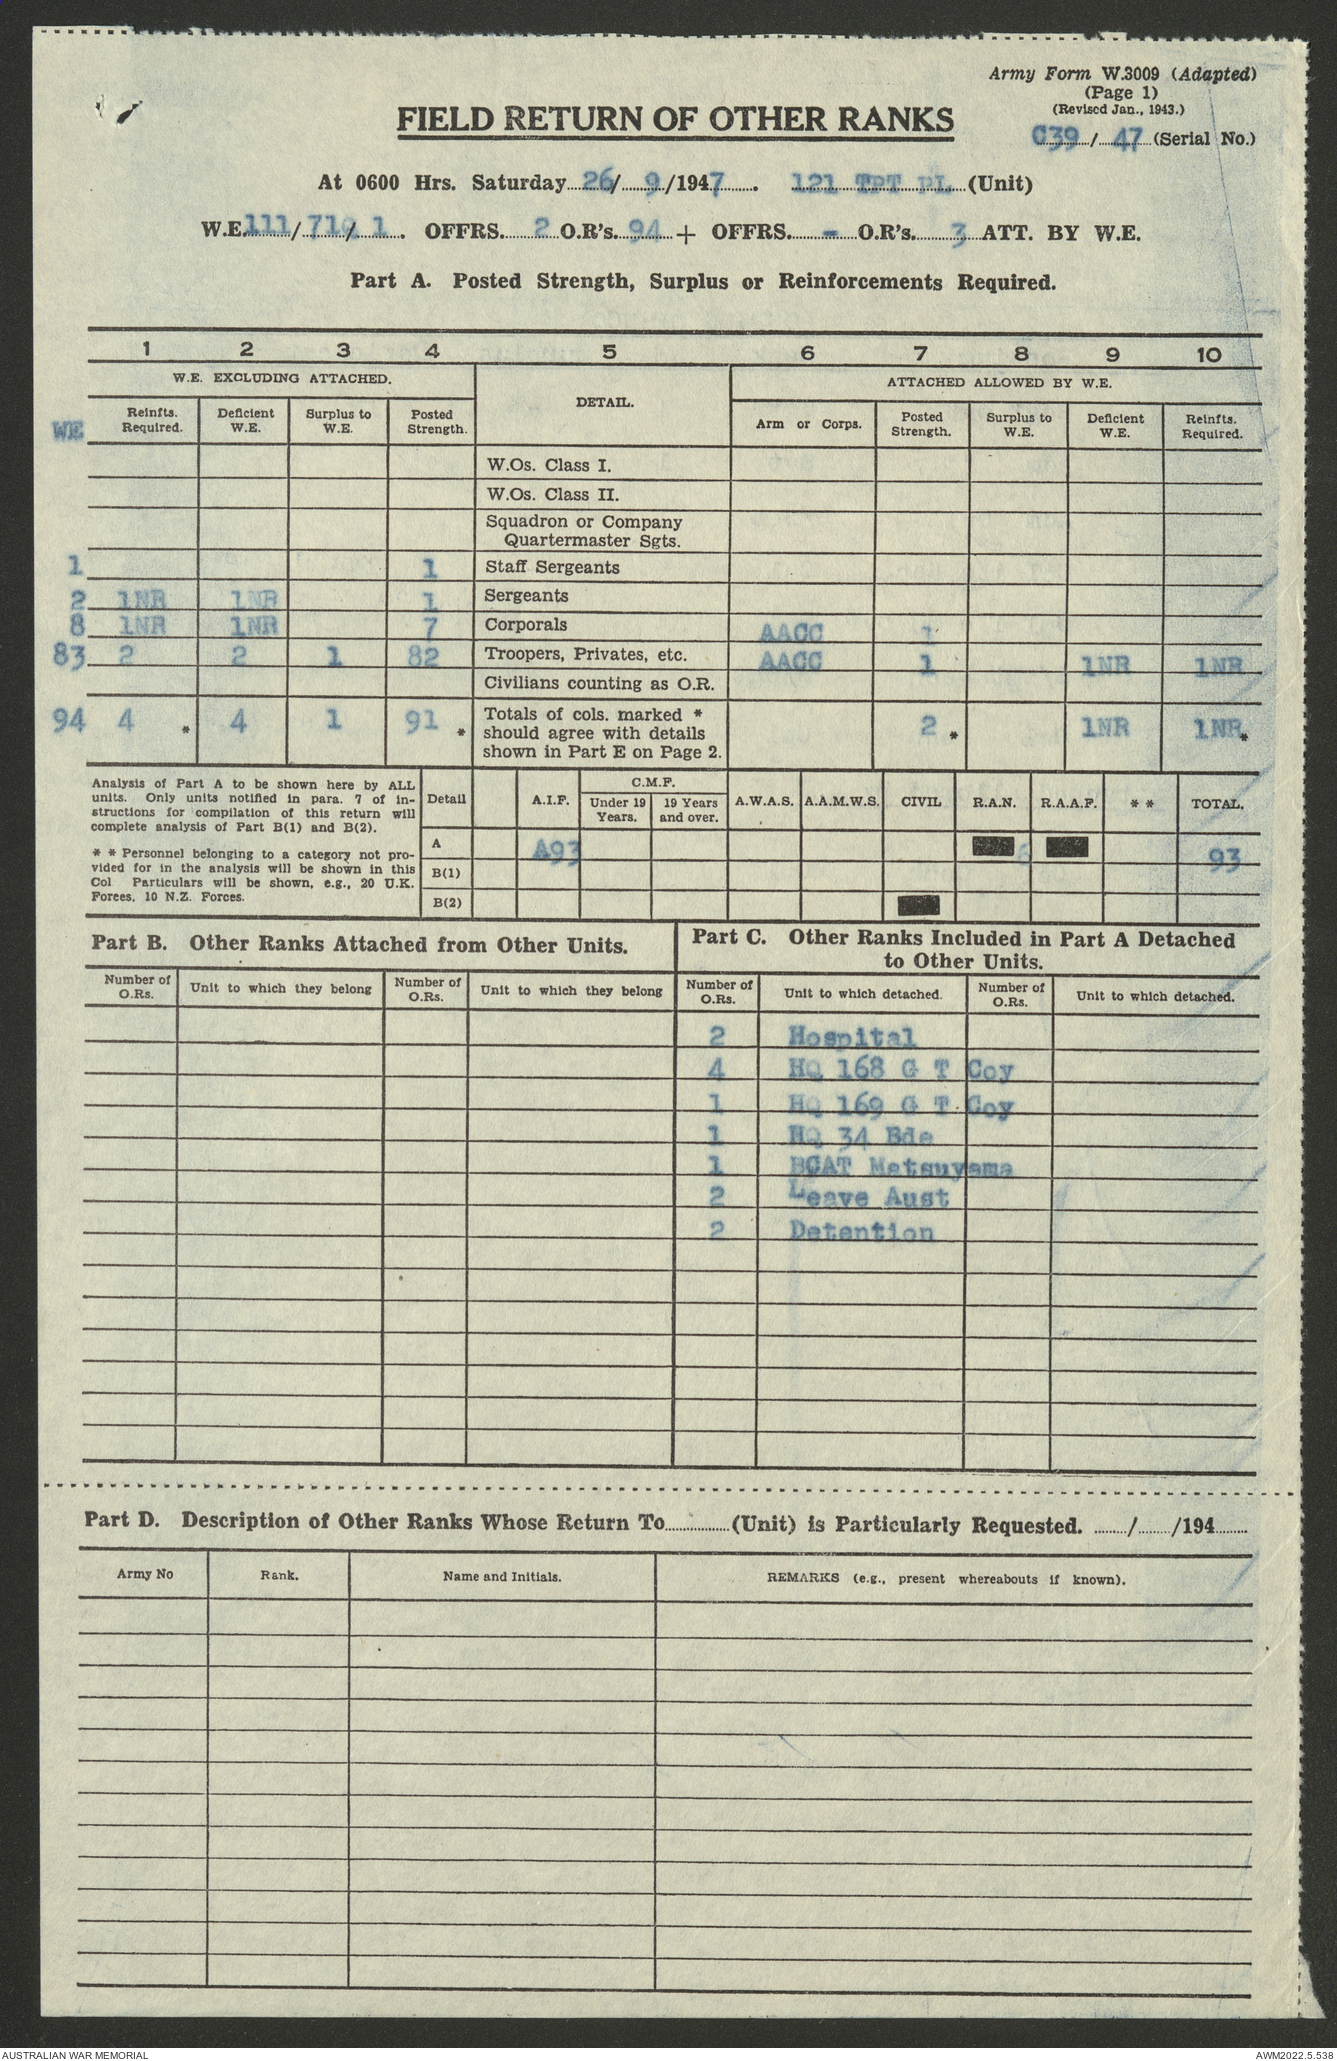 Army Form W.3009 (Adapted)
(Page 1)
(Revised Jan., 1943.)
C39 / 47 (Serial No.)
FIELD RETURN OF OTHER RANKS
At 0600 Hrs. Saturday 26/ 9/1947 . 121 TPT PL (Unit)
W.E. 111/ 710/ 1 . OFFRS. 2 O.R's. 94 + OFFRS. - O.R's. 3 ATT. BY W.E.
Part A. Posted Strength, Surplus or Reinforcements Required.
1 2 3 4 5 6 7 8 9 10
W.E. EXCLUDING ATTACHED. DETAIL. ATTACHED ALLOWED BY W.E.
WE Reinfts. Required. Deficient W.E. Surplus to W.E. Posted Strength. Arm or Corps. Posted Strength. Surplus to W.E. Deficient W.E. Reinfts. Required.
W.Os. Class I.
W.Os. Class II.
Squadron or Company
Quartermaster Sgts.
1 1 Staff Sergeants
2 1NR 1NR 1 Sergeants
8 1NR 1NR 7 Corporals AACC 1
83 2 2 1 82 Troopers, Privates, etc. AACC 1 1NR 1NR
Civilians counting as O.R.
94 4 * 4 1 91 * Totals of cols. marked *
should agree with details
shown in Part E on Page 2. 2 * 1NR 1NR*
Analysis of Part A to be shown here by ALL
units. Only units notified in para. 7 of in-
structions for compilation of this return will
complete analysis of Part B(1) and B(2).
* * Personnel belonging to a category not pro-
vided for in the analysis will be shown in this
Col Particulars will be shown, e.g., 20 U.K.
Forces, 10 N.Z. Forces.
Detail A.I.F. C.M.F. Under 19 Years. 19 Years and over. A.W.A.S. A.A.M.W.S. CIVIL R.A.N. R.A.A.F. * * TOTAL.
A A93 93
B(1)
B(2)
Part B. Other Ranks Attached from Other Units.
Number of O.Rs. Unit to which they belong Number of O.Rs. Unit to which they belong
Part C. Other Ranks Included in Part A Detached
to Other Units.
Number of O.Rs. Unit to which detached. Number of O.Rs. Unit to which detached.
2 Hospital
4 HQ 168 G T Coy
1 HQ 169 G T Coy
1 HQ 34 Bde
1 BCAT Matsuyama
2 Leave Aust
2 Detention
Part D. Description of Other Ranks Whose Return To (Unit) is Particularly Requested. / /194
Army No Rank. Name and Initials. REMARKS (e.g., present whereabouts if known).
AUSTRALIAN WAR MEMORIAL AWM2022.5.538